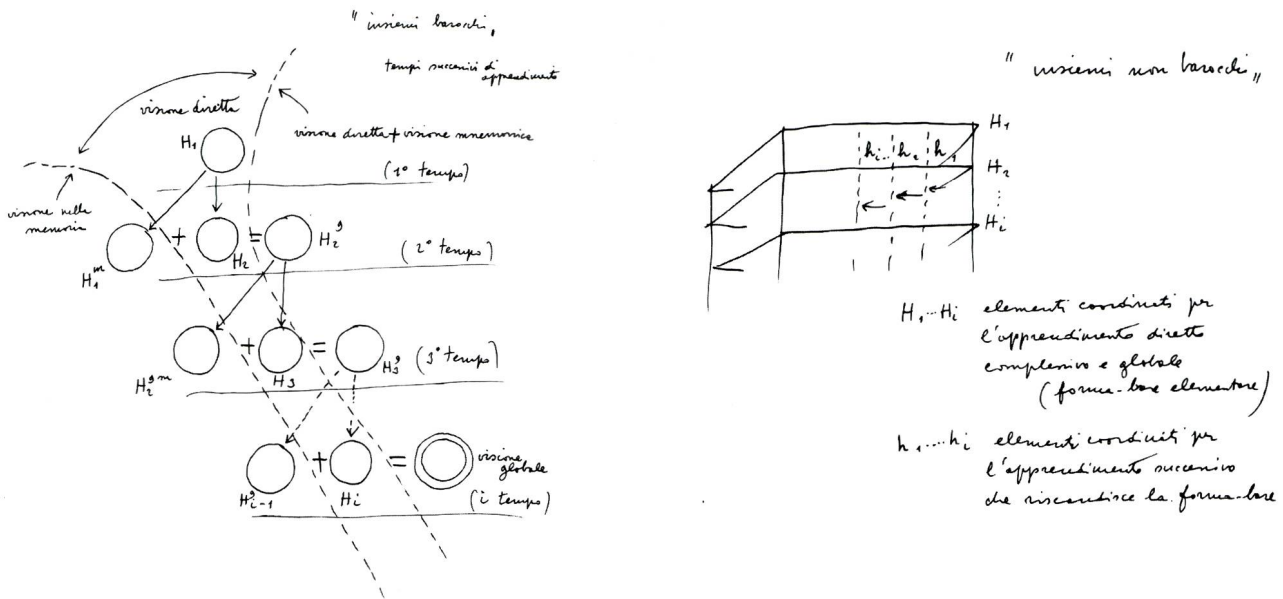 " insiemi barocchi "
tempi successivi di
apprendimento
visione diretta
visione diretta + visione mnemonica
H1
(1° tempo)
visione nella
memoria
H1^m + H2 = H2^g
(2° tempo)
H2^gm + H3 = H3^g
(3° tempo)
H^g i-1 + Hi =
visione
globale
(i tempo)
" insiemi non barocchi "
H1
hi.. h2 h1
H2
⋮
Hi
H1...Hi elementi coordinati per
l'apprendimento diretto
complessivo e globale
(forma-base elementare)
h1.....hi elementi coordinati per
l'apprendimento successivo
che riscandisce la forma-base